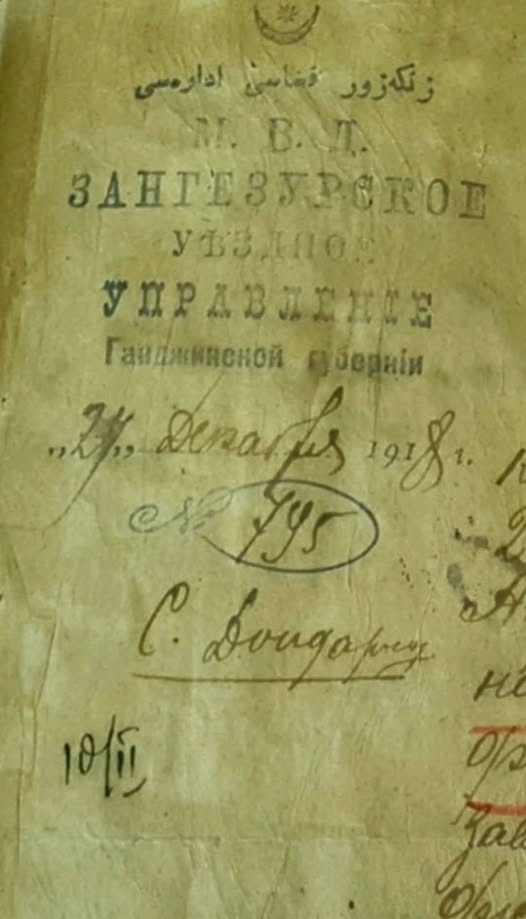 زنكه‌زور قضاسى اداره‌سى
М. В. Д.
ЗАНГЕЗУРСКОЕ
УѢЗДНОЕ
УПРАВЛЕНІЕ
Ганджинской губерніи
„27„ Декабря 1918 г.
№ 795
С. Дондарлу
10/II